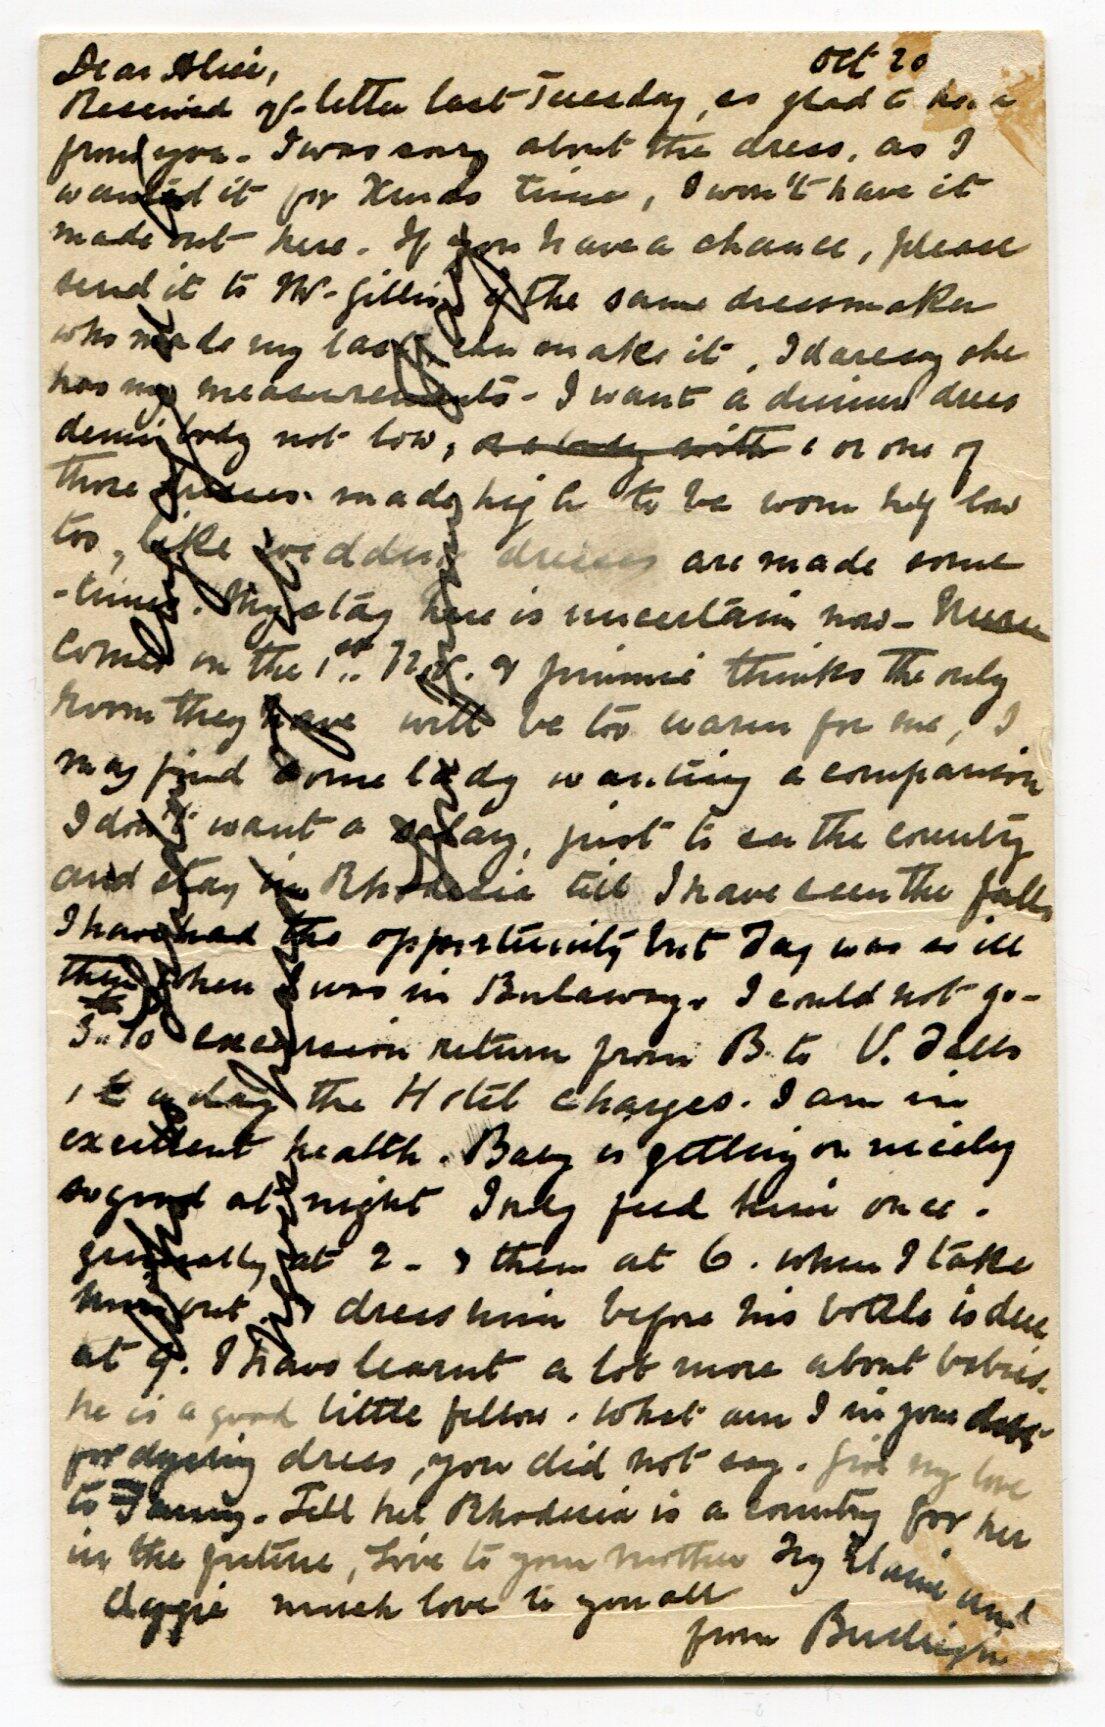 Dear Alice, Oct 20
Received yr letter last Tuesday, so glad to hear
from you. I was sorry about the dress, as I
wanted it for Xmas time, I won't have it
made out here. If you have a chance, please
send it to Mr Gillis if the same dressmaker
who made my last can make it, I daresay she
has my measurements - I want a dinner dress
demi body not low, or a body with or one of
those dresses made high to be worn low
too, like wedding dresses are made some
-times. My stay here is uncertain now - Nurse
comes on the 1st Nov. & Jimmie thinks the only
room they have will be too warm for me, I
may find some lady wanting a companion
I don't want a salary, just to see the country
and stay in Rhodesia till I have seen the falls
I have had the opportunity but was so ill
then when I was in Bulawayo I could not go -
excursion return from B. to V. Falls
a day the Hotel charges. I am in
excellent health. Baby is getting on nicely
so good at night I only feed him once.
generally at 2 - & then at 6. when I take
him out & dress him before his bottle is due
at 9. I have learnt a lot more about babies.
he is a good little fellow. What am I in your debt
for dyeing dress, you did not say. Give my love
to Tell her Rhodesia is a country for her
in the future, Love to your mother Elaine and
much love to you all
from